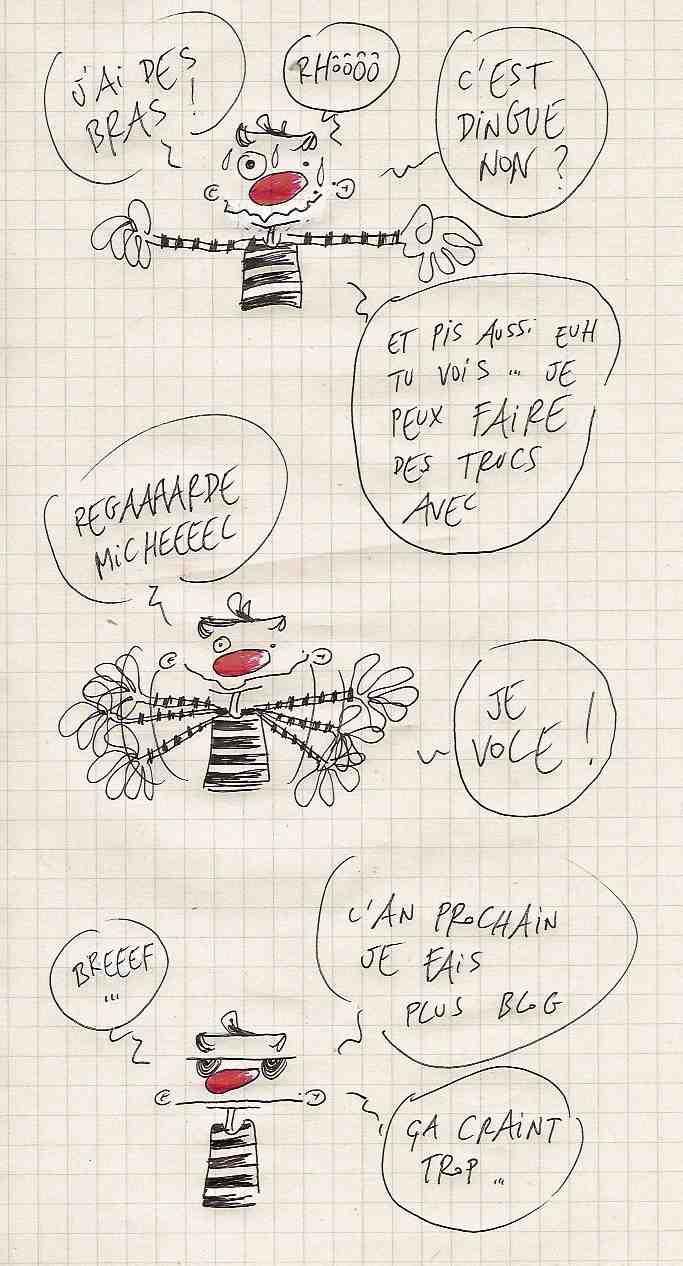 J'Ai DES
BRAS !
RHôôôô
C'EST
DiNGUE
NON ?
ET PiS AUSSi EUH
TU VOiS ... JE
PEUX FAiRE
DES TRUCS
AVEC
REGAAAARDE
MiCHEEEEL
JE
VOLE !
BREEEF
...
L'AN PRoCHAiN
JE FAiS
PLUS BLoG
ÇA CRAiNT
TRoP ...